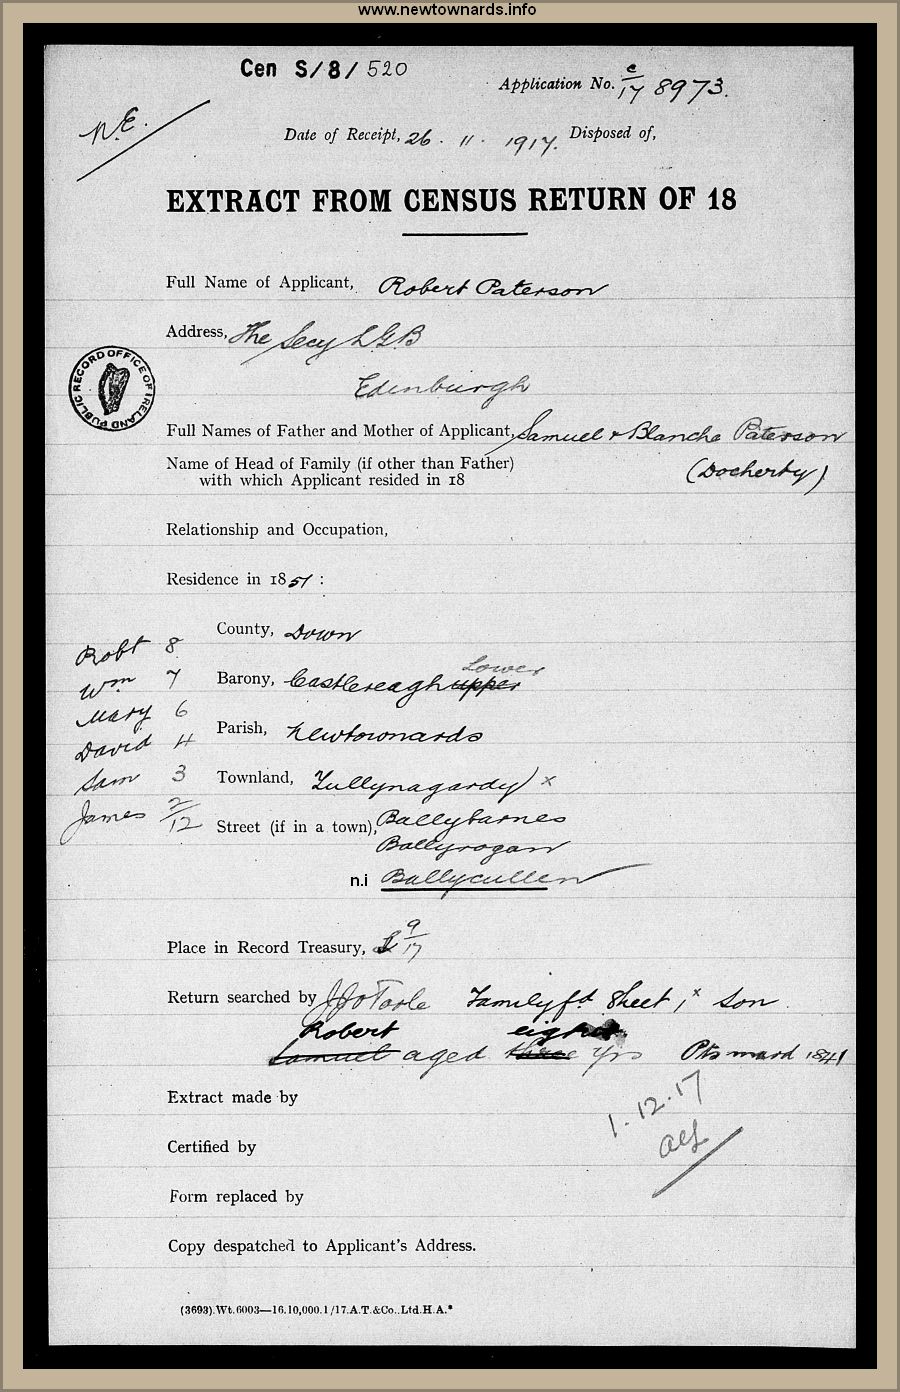 www.newtownards.info
Cen S/8/ 520
Application No. c/17 8973.
N.E.
Date of Receipt, 26 . 11 . 1917. Disposed of,
EXTRACT FROM CENSUS RETURN OF 18
Full Name of Applicant, Robert Paterson
Address, The Secy LGB
Edinburgh
PUBLIC RECORD OFFICE OF IRELAND
Full Names of Father and Mother of Applicant, Samuel & Blanche Paterson
Name of Head of Family (if other than Father)
with which Applicant resided in 18
(Docherty)
Relationship and Occupation,
Residence in 1851 :
County, Down
Robt 8
Wm 7
Mary 6
David 4
Sam 3
James 2/12
Lower
Barony, Castlereagh upper
Parish, Newtownards
Townland, Tullynagardy x
Street (if in a town), Ballybarnes
Ballyrogan
n.i Ballycullen
Place in Record Treasury, 9/17
Return searched by J J O'Toole Family fd Sheet 1, x Son
Robert eight
Samuel aged three yrs Pts mard 1841
Extract made by
1.12.17
Certified by
Form replaced by
Copy despatched to Applicant's Address.
(3693).Wt.6003—16.10,000.1/17.A.T.&Co..Ltd.H.A.*